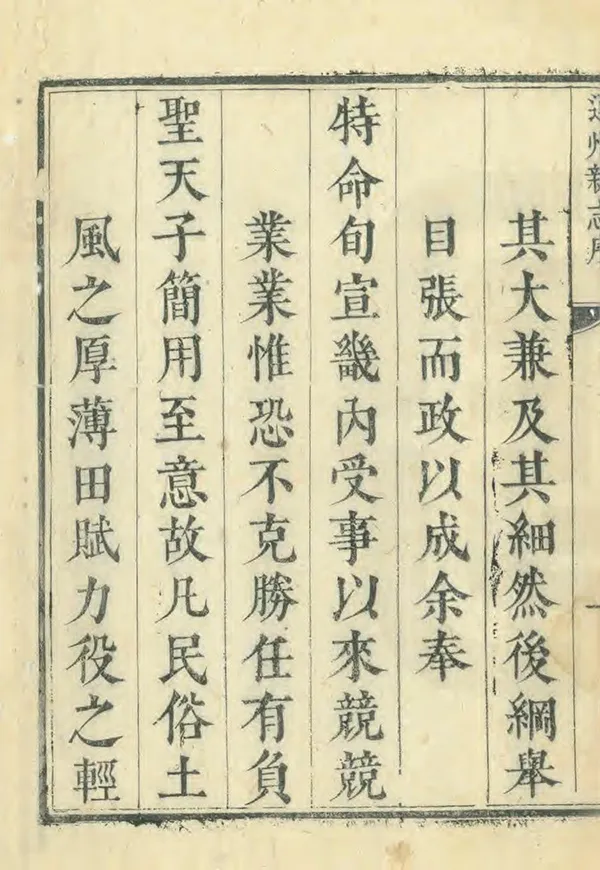 通州新志序
其大兼及其細然後綱舉
目張而政以成余奉
特命旬宣畿內受事以來競競
業業惟恐不克勝任有負
聖天子簡用至意故凡民俗土
風之厚薄田賦力役之輕